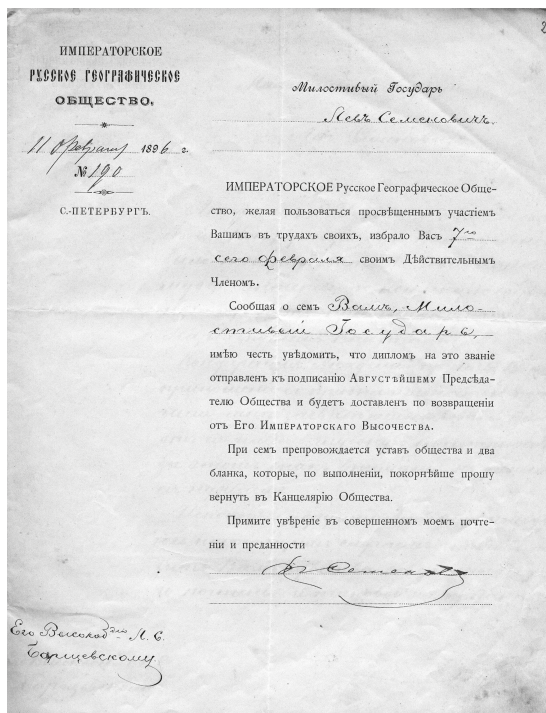 2
ИМПЕРАТОРСКОЕ
РУССКОЕ ГЕОГРАФИЧЕСКОЕ
ОБЩЕСТВО.
11 февраля 1896 г.
№ 190
С.-ПЕТЕРБУРГЪ.
Милостивый Государь
Левъ Семеновичъ
ИМПЕРАТОРСКОЕ Русское Географическое Обще-
ство, желая пользоваться просвѣщеннымъ участіемъ
Вашимъ въ трудахъ своихъ, избрало Васъ 7го
сего февраля своимъ Дѣйствительнымъ
Членомъ.
Сообщая о семъ Вамъ, Мило-
стивый Государь,
имѣю честь увѣдомить, что дипломъ на это званіе
отправленъ къ подписанію Августѣйшему Предсѣда-
телю Общества и будетъ доставленъ по возвращеніи
отъ Его Императорскаго Высочества.
При семъ препровождается уставъ общества и два
бланка, которые, по выполненіи, покорнѣйше прошу
вернуть въ Канцелярію Общества.
Примите увѣреніе въ совершенномъ моемъ почте-
ніи и преданности
П Семеновъ
Его Высокобдію Л. С.
Барщевскому